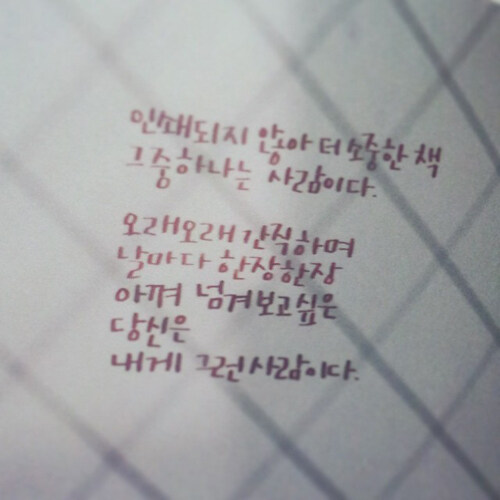 인쇄되지 않아 더 소중한 책
그중 하나는 사람이다.
오래오래 간직하며
날마다 한장한장
아껴 넘겨보고싶은
당신은
내게 그런사람이다.